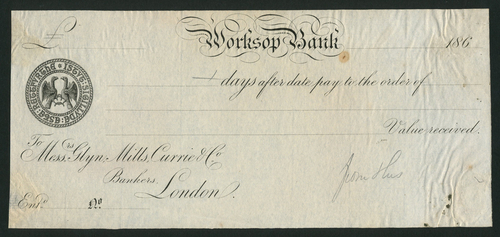 £ Worksop Bank 186
days after date pay to the order of
Value received.
To
Messrs. Glyn, Mills, Currie & Co
Bankers,
London.
Entd. No